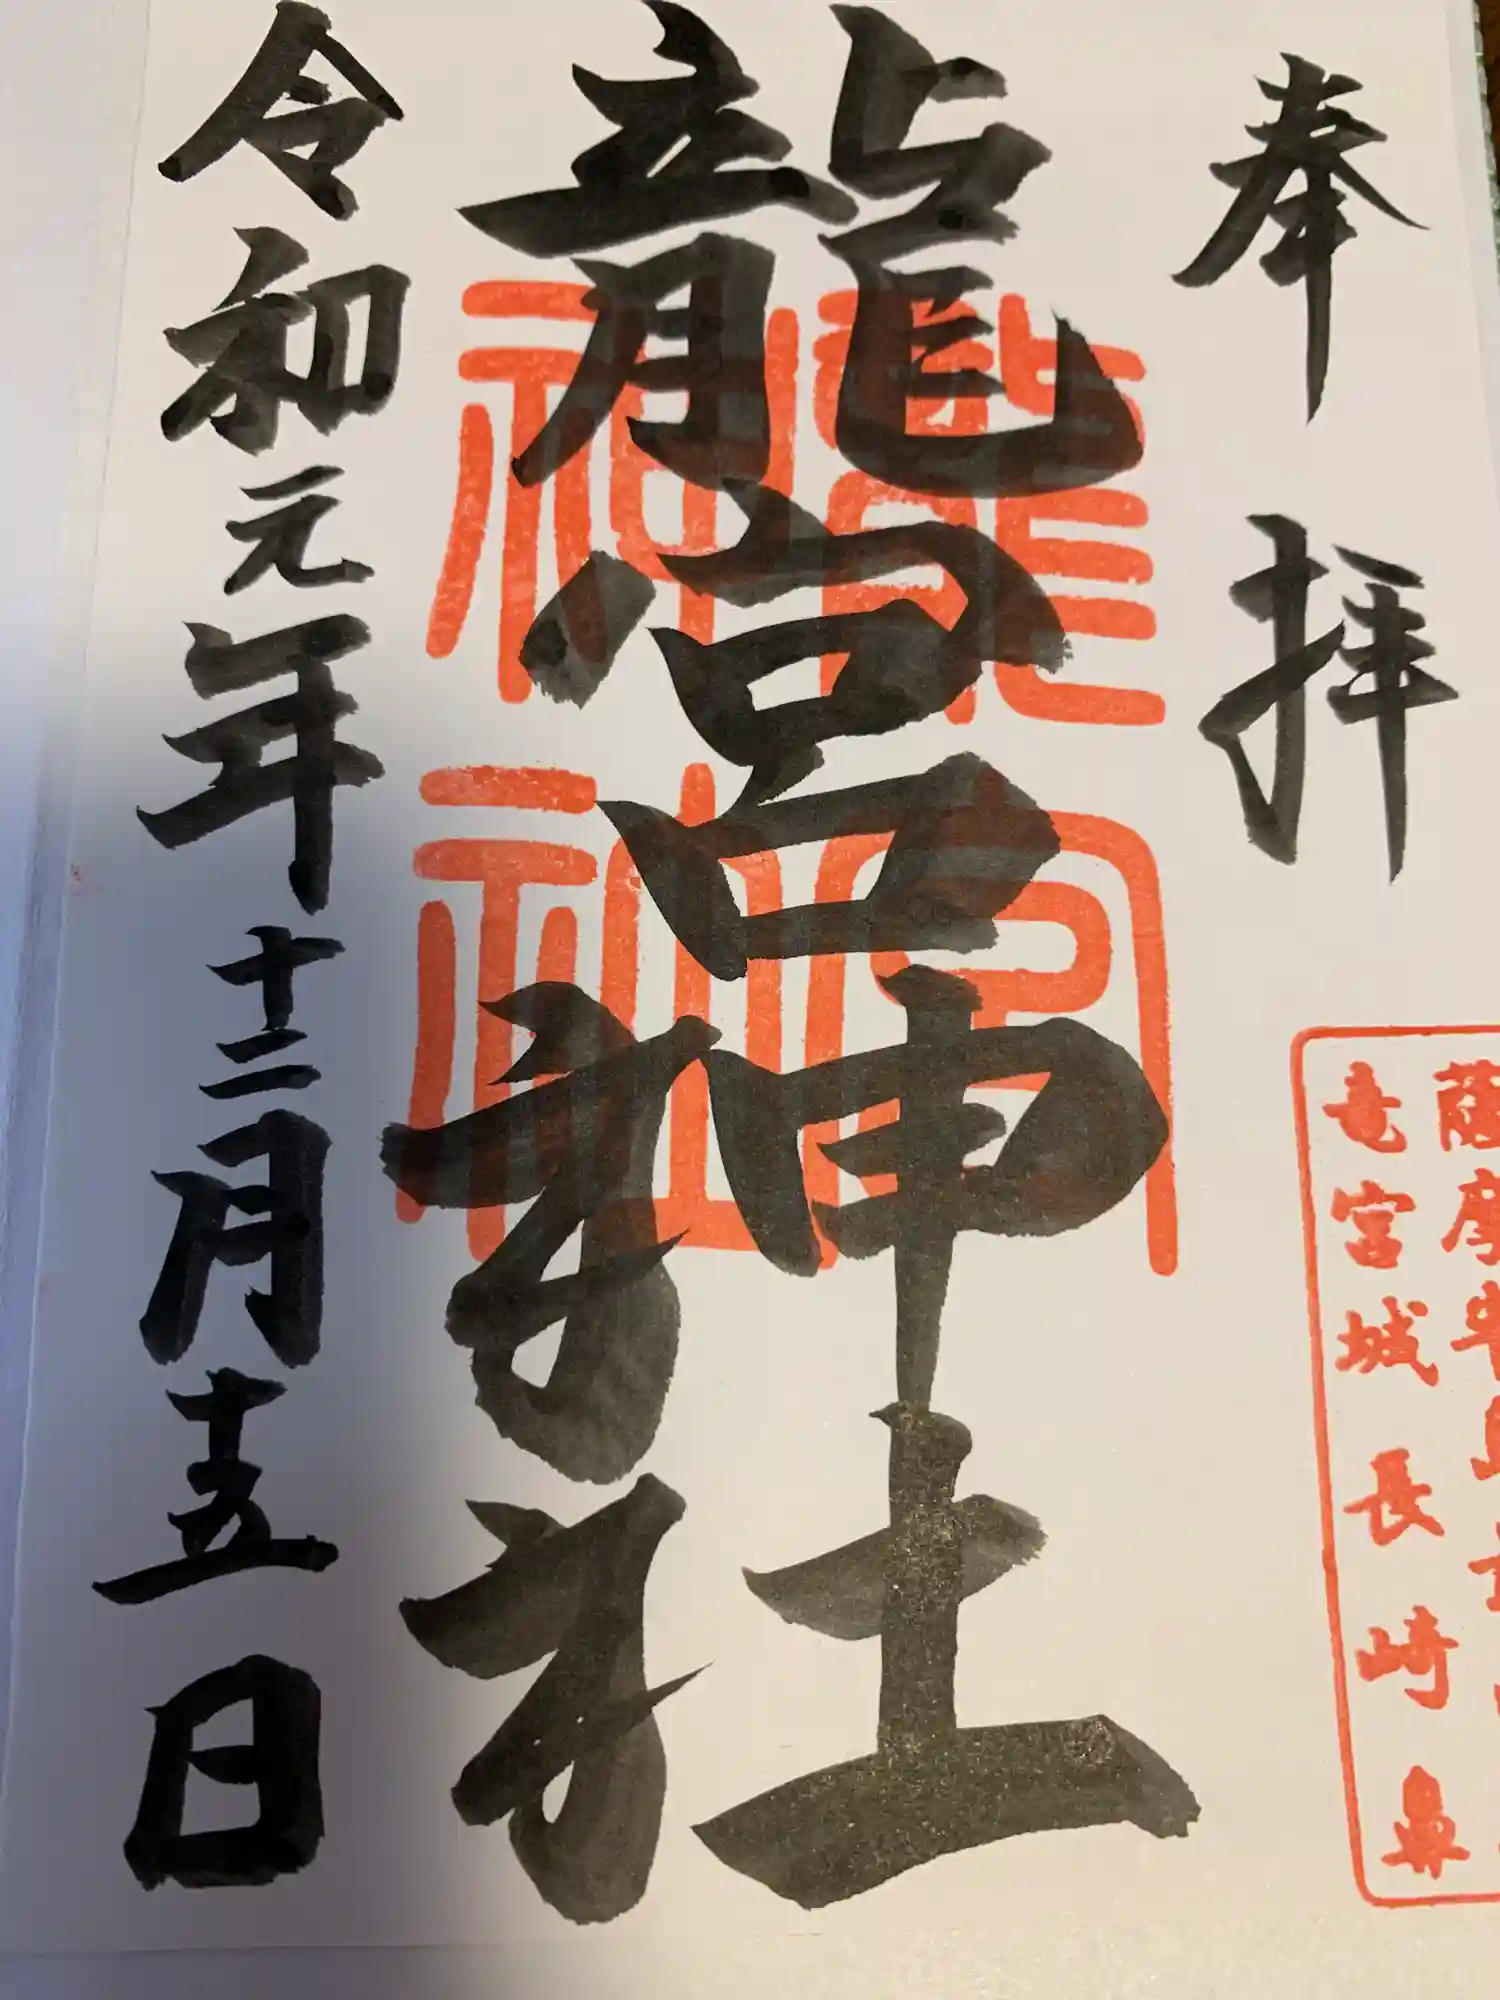 奉拝
薩摩半島
竜宮城長崎鼻
龍宮神社
龍宮神社
令和元年十二月十五日